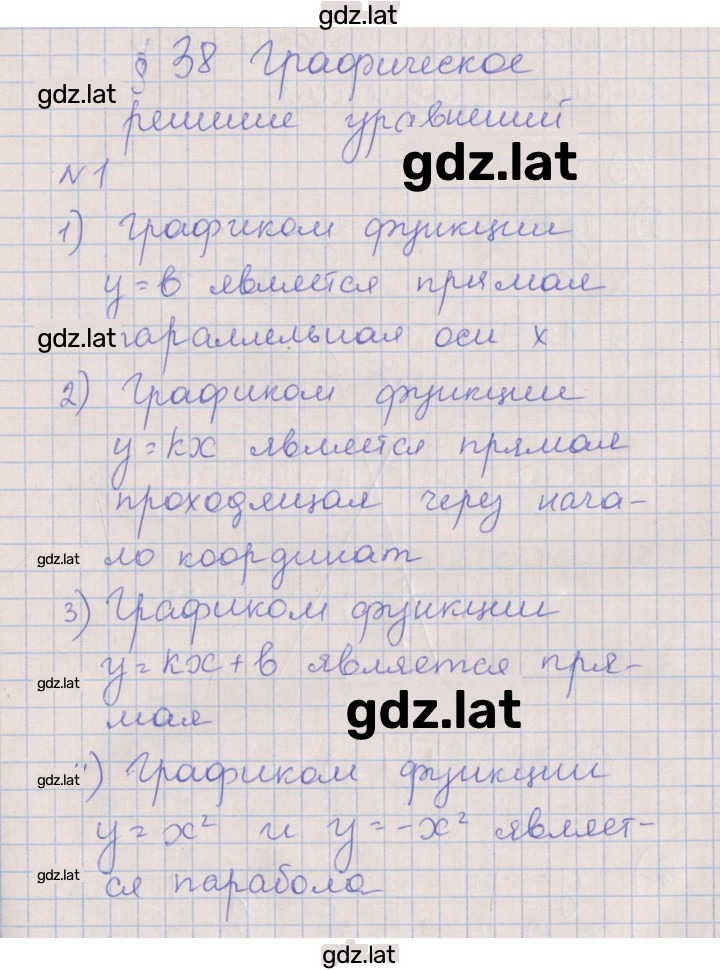 gdz.lat
§ 38 Графическое
gdz.lat
решение уравнений
gdz.lat
№1
1) Графиком функции
y = в является прямая
gdz.lat
параллельная оси x
2) Графиком функции
y = kx является прямая
проходящая через нача-
gdz.lat
ло координат
3) Графиком функции
y = kx + в является пря-
gdz.lat
мая
gdz.lat
gdz.lat
) Графиком функции
y = x² и y = -x² являет-
gdz.lat
ся парабола
gdz.lat